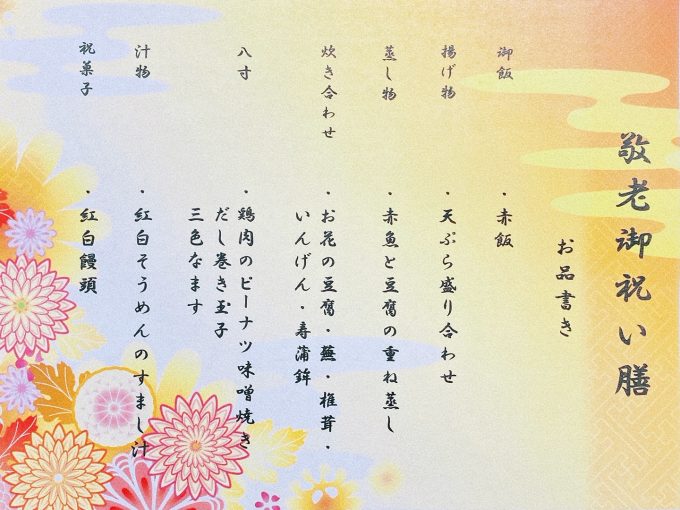 敬老御祝い膳
お品書き
御飯
・赤飯
揚げ物
・天ぷら盛り合わせ
蒸し物
・赤魚と豆腐の重ね蒸し
炊き合わせ
・お花の豆腐・蕪・椎茸・
いんげん・寿蒲鉾
八寸
・鶏肉のピーナツ味噌焼き
だし巻き玉子
三色なます
汁物
・紅白そうめんのすまし汁
祝菓子
・紅白饅頭